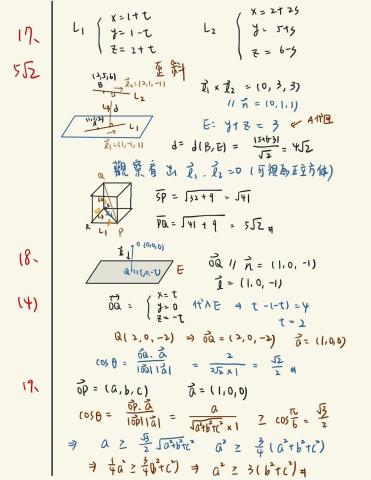 17、
5√2
L₁ { x = 1+t
y = 1-t
z = 2+t
L₂ { x = 2+2s
y = 5+s
z = 6-s
歪斜
(2,5,6)
B
ℓ⃗₂=(2,1,-1)
L₂
d
(1,1,2)
L₁
ℓ⃗₁=(1,-1,1)
ℓ⃗₁×ℓ⃗₂ = (0,3,3)
// n⃗ = (0,1,1)
E: y+z = 3 ↙ A代回
d = d(B,E) = |5+6-3|/√2 = 4√2
觀察看出 ℓ⃗₁·ℓ⃗₂=0 (可視為正立方体)
Q
S
R
L₁
P
SP = √(32+9) = √41
PQ = √(41+9) = 5√2 #
18、
(4)
ℓ⃗
O(0,0,0)
Q(t,0,-t)
E
OQ⃗ // n⃗ = (1,0,-1)
ℓ⃗ = (1,0,-1)
OQ = { x=t
y=0
z=-t
代入E ⇒ t-(-t)=4
t=2
Q(2,0,-2) ⇒ OQ⃗ = (2,0,-2) a⃗=(1,0,0)
cosθ = OQ⃗·a⃗/|OQ⃗||a⃗| = 2/(2√2×1) = √2/2 #
19、
OP⃗ = (a,b,c) a⃗ = (1,0,0)
cosθ = OP⃗·a⃗/|OP⃗||a⃗| = a/(√(a²+b²+c²)×1) ≥ cos π/6 = √3/2
⇒ a ≥ √3/2 √(a²+b²+c²) a² ≥ 3/4 (a²+b²+c²)
⇒ 1/4 a² ≥ 3/4(b²+c²) ⇒ a² ≥ 3(b²+c²) #